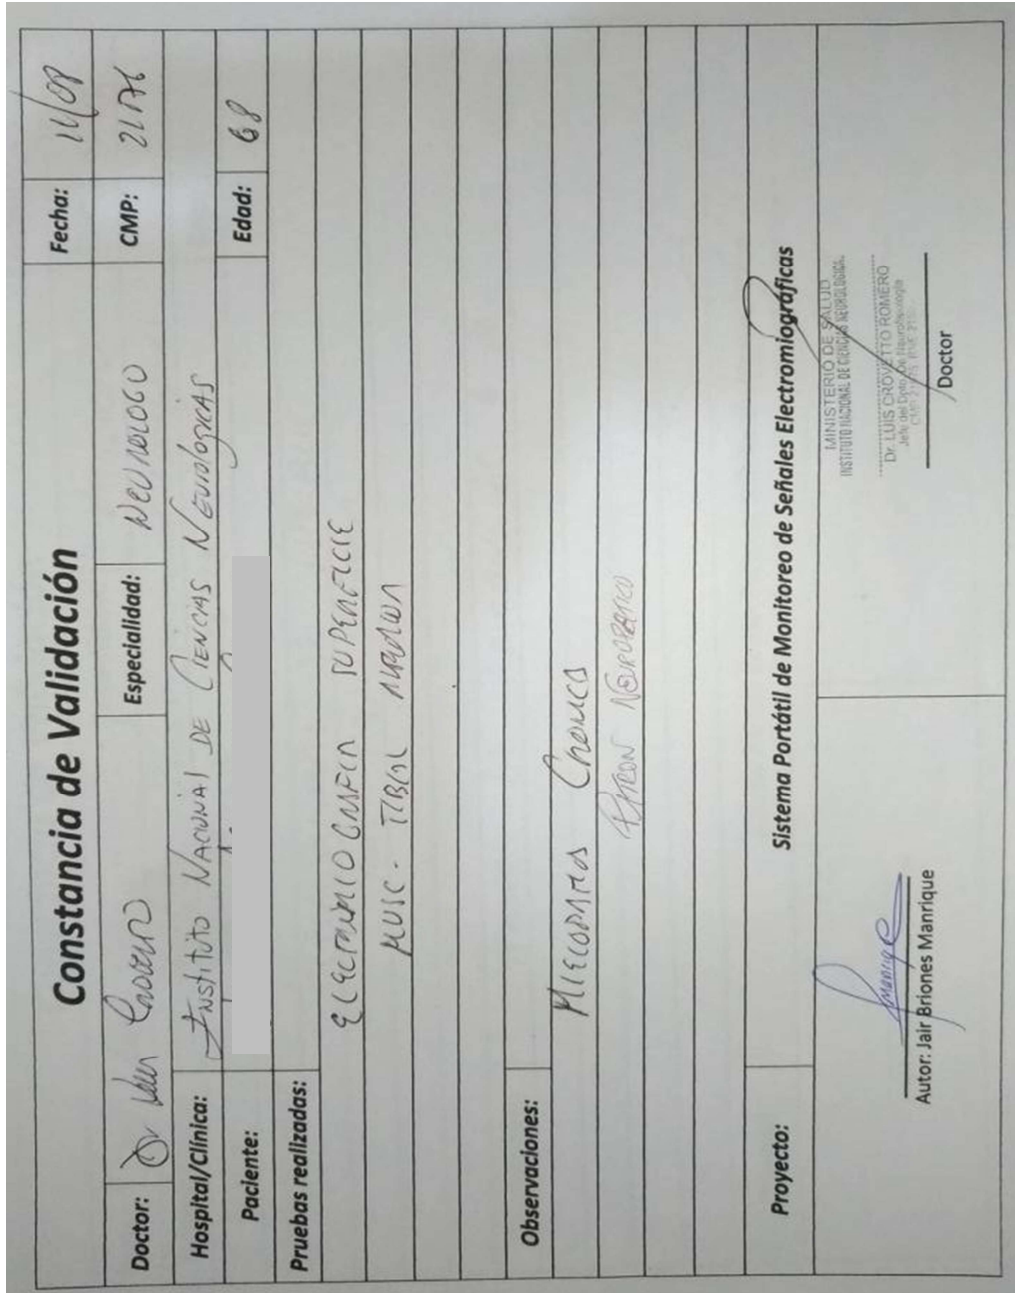 Constancia de Validación
Fecha: 11/08
Doctor: Dr Luis Crovetto
Especialidad: Neurologo
CMP: 21176
Hospital/Clínica: Instituto Nacional de Ciencias Neurologicas
Paciente:
Edad: 68
Pruebas realizadas:
Electromiografia superficie
Musc. Tibial
Observaciones:
Mielopatia Cronica
Patron Neuropatico
Proyecto: Sistema Portátil de Monitoreo de Señales Electromiográficas
Autor: Jair Briones Manrique
MINISTERIO DE SALUD
INSTITUTO NACIONAL DE CIENCIAS NEUROLOGICAS
Dr. LUIS CROVETTO ROMERO
Jefe del Dpto. De
Doctor